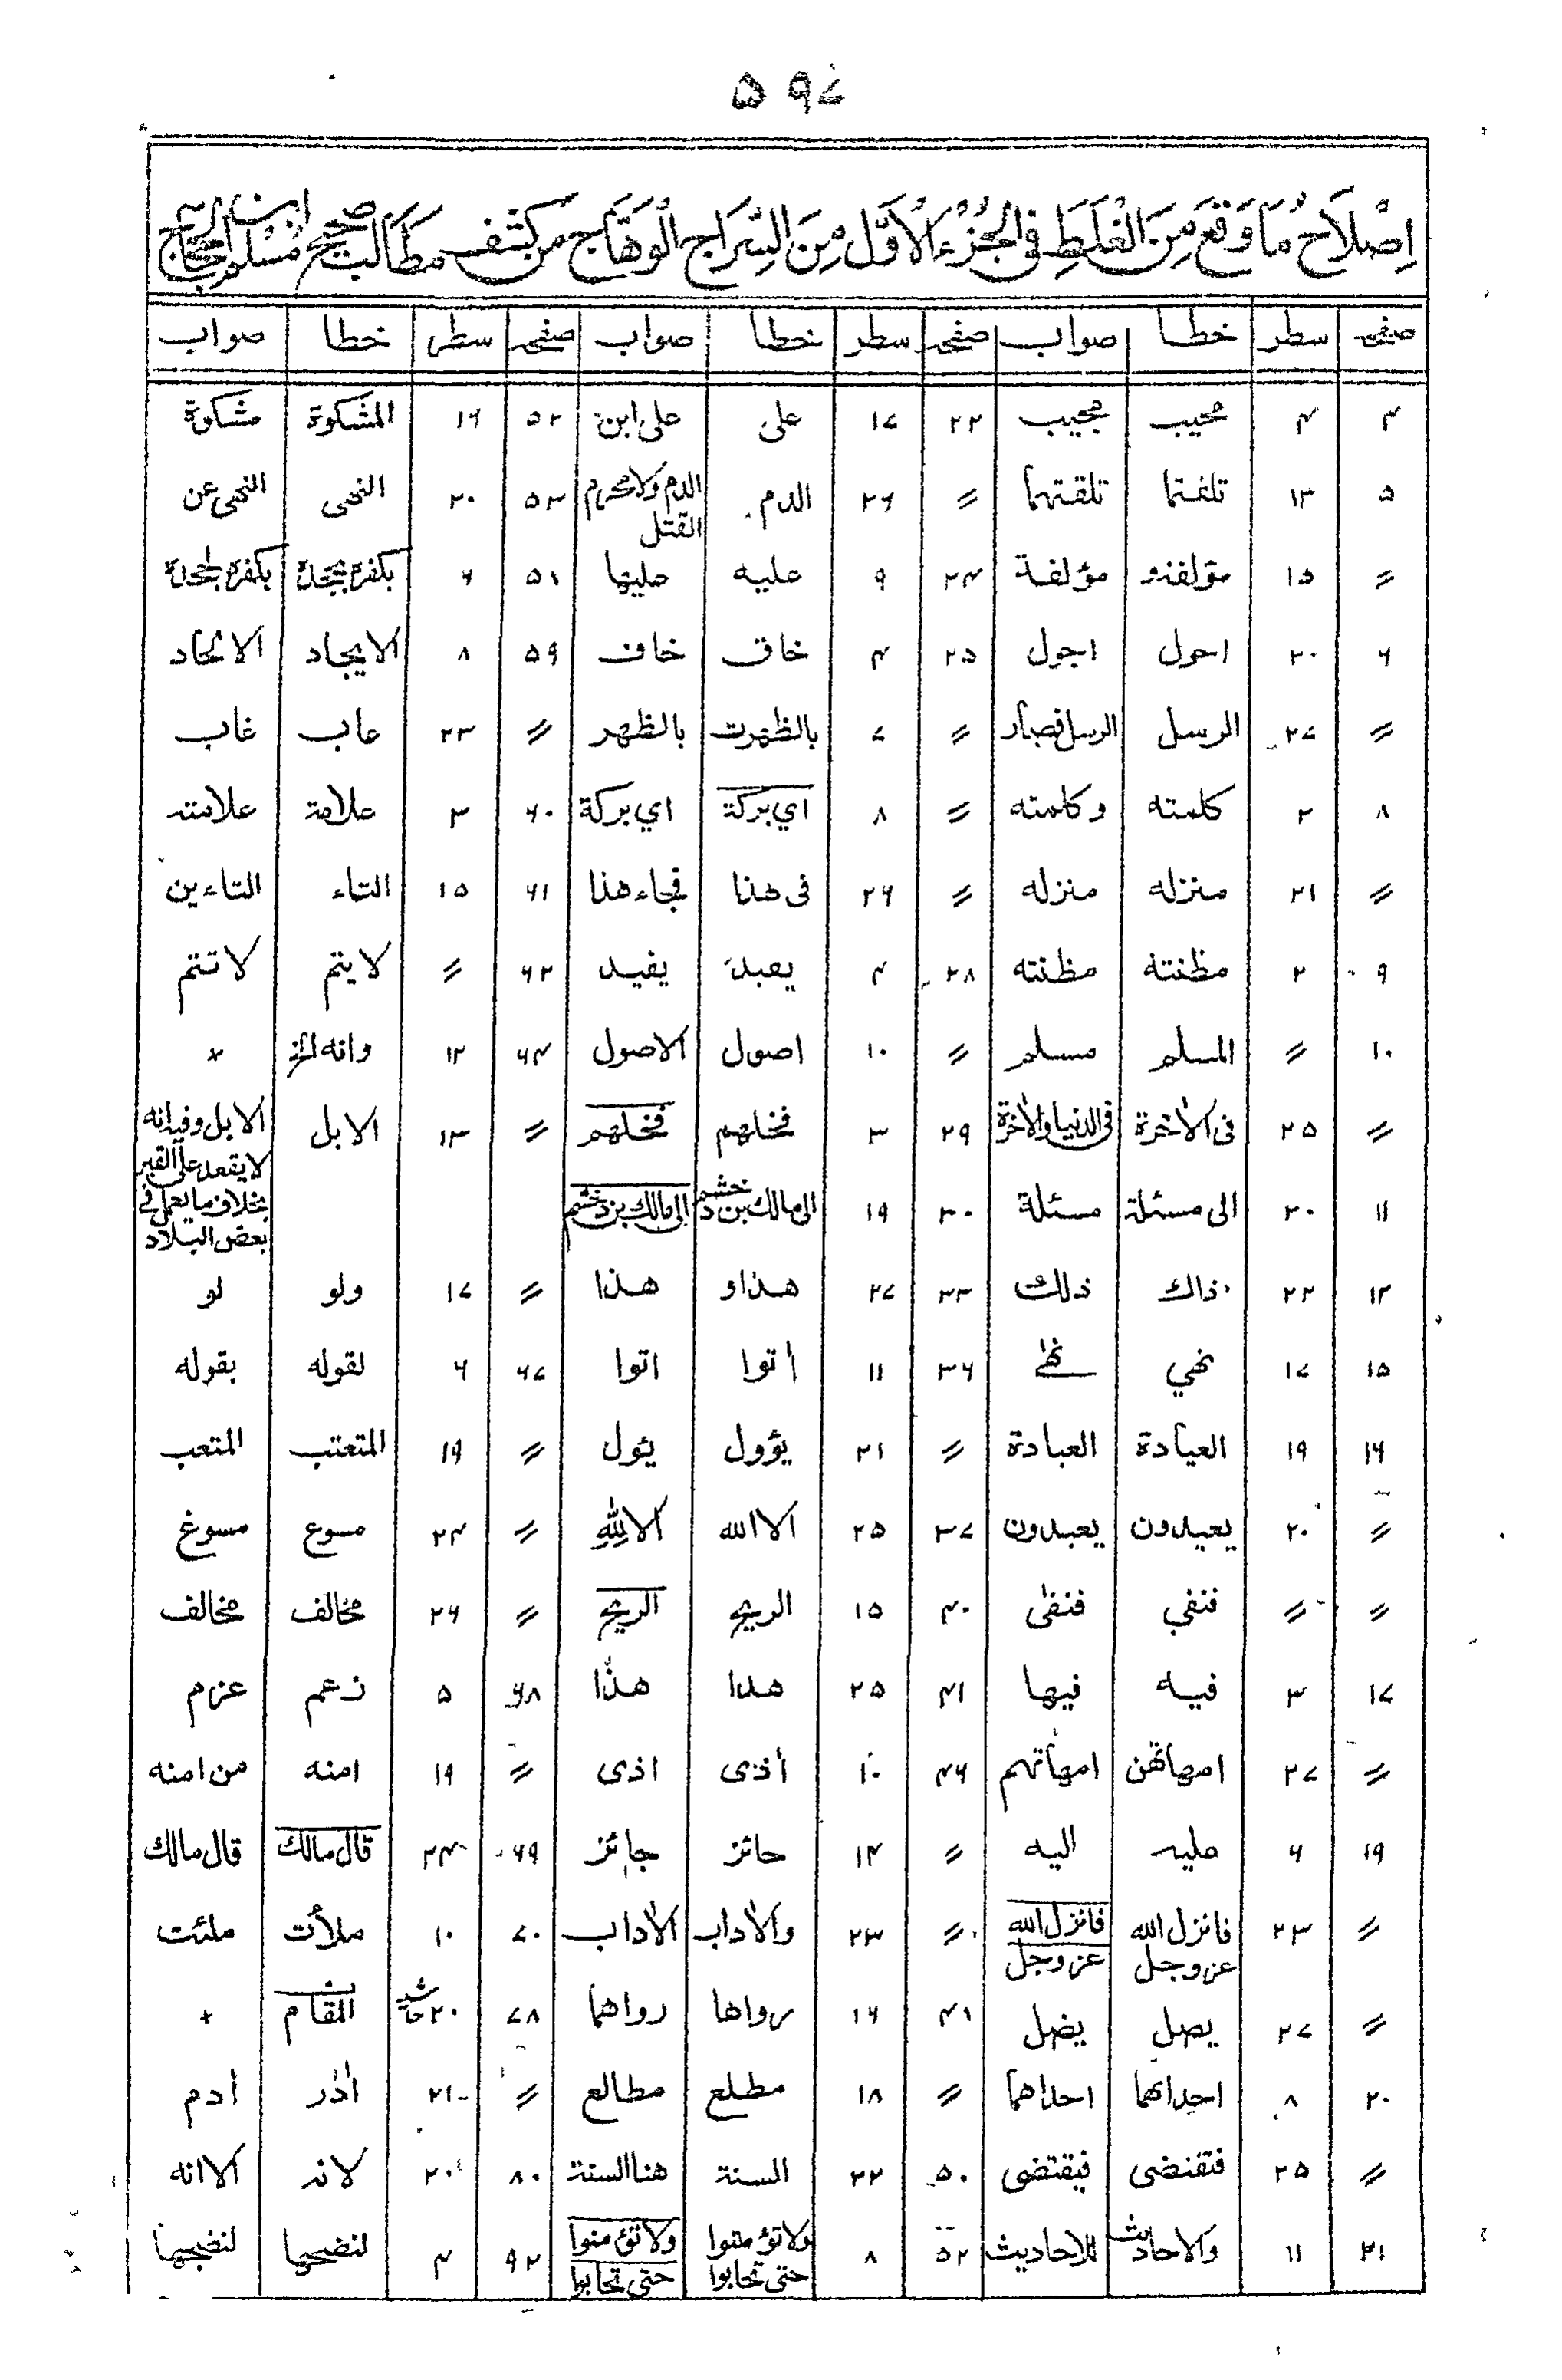 ۵۹۷
اِصْلَاحُ مَا وَقَعَ مِنَ الْغَلَطِ فِي الْجُزْءِ الْأَوَّلِ مِنَ السِّرَاجِ الْوَهَّاجِ مِن كشف مطَالب صحيح مُسْلم ابن الحجاج
صفحہ سطر خطا صواب صفحہ سطر خطا صواب صفحہ سطر خطا صواب
۴ ۴ محيب مجيب ۲۲ ۱۷ على على ابن ۵۲ ۱۶ المشكوة مشكوة
۵ ۱۳ تلقتا تلقتهما 〃 ۲۶ الدم الدم ولا محرم القتل ۵۳ ۲۰ النهى النهى عن
〃 ۱۵ مؤلفذو مؤلفة ۲۴ ۹ عليه عليها ۵۸ ۶ بكفره بجحدة بكفره لجحدة
۶ ۲۰ احول اجول ۲۵ ۴ خاق خاف ۵۹ ۸ الايجاد الالحاد
〃 ۲۷ الرسل الرسل فصار 〃 ۷ بالظهرت بالظهر 〃 ۲۳ عاب غاب
۸ ۲ كلمته وكلمته 〃 ۸ اي بركة اي بركة ۶۰ ۳ علامة علامته
〃 ۲۱ منزله منزله 〃 ۲۶ فى هذا فجاء هذا ۶۱ ۱۵ التاء التاءين
۹ ۲ مظنته مظنته ۲۸ ۴ يعبد يفيد ۶۲ 〃 لا يتم لا تتم
۱۰ 〃 المسلم مسلم 〃 ۱۰ اصول الاصول ۶۴ ۱۲ وانه الخ ×
〃 ۲۵ فى الآخرة فى الدنيا والآخرة ۲۹ ۳ فخلهم فخلهم 〃 ۱۳ الابل الابل وفيه انه لا يقعد على القبر بخلاف ما يعمل في بعض البلاد
۱۱ ۲۰ الى مسئلة مسئلة ۳۰ ۱۹ الى مالك بن دخشم الى مالك بن دخشم
۱۲ ۲۲ ذاك ذلك ۳۳ ۲۷ هذاو هذا 〃 ۱۷ ولو لو
۱۵ ۱۷ نهي نهى ۳۶ ۱۱ أتوا اتوا ۶۷ ۶ لقوله بقوله
۱۶ ۱۹ العيادة العبادة 〃 ۲۱ يؤول يئول 〃 ۱۹ المتعتب المتعب
〃 ۲۰ يعيدون يعبدون ۳۷ ۲۵ الا الله الا لله 〃 ۲۴ مسوع مسوغ
〃 〃 فنفي فنفى ۴۰ ۱۵ الريح الريح 〃 ۲۶ مخالف مخالف
۱۷ ۳ فيه فيها ۴۱ ۲۵ هدا هذا ۶۸ ۵ زعم عزم
〃 ۲۷ امهاتهن امهاتهم ۴۶ ۱۰ أذى اذى 〃 ۱۹ امنه من امنه
۱۹ ۶ عليه اليه 〃 ۱۴ حائز جائز ۶۹ ۲۴ قال مالك قال مالك
〃 ۲۳ فانزل الله عز وجل فانزل الله عز وجل 〃 ۲۳ والاداب الاداب ۷۰ ۱۰ ملأت ملئت
〃 ۲۷ يصل يضل ۴۸ ۱۶ رواها رواهما ۷۸ ۲۰ حاشيه المقام ×
۲۰ ۸ احداهما احداهما 〃 ۱۸ مطلع مطالع 〃 ۲۱ أدر أدم
〃 ۲۵ فتقنضى فيقتضى ۵۰ ۲۲ السنة هنا السنة ۸۰ ۲۰ لانه الا انه
۲۱ ۱۱ والاحاديث للاحاديث ۵۲ ۸ ولا تؤمنوا حتى تحابوا ولا تؤمنوا حتى تحابوا ۹۲ ۴ لنضحها لنضجها